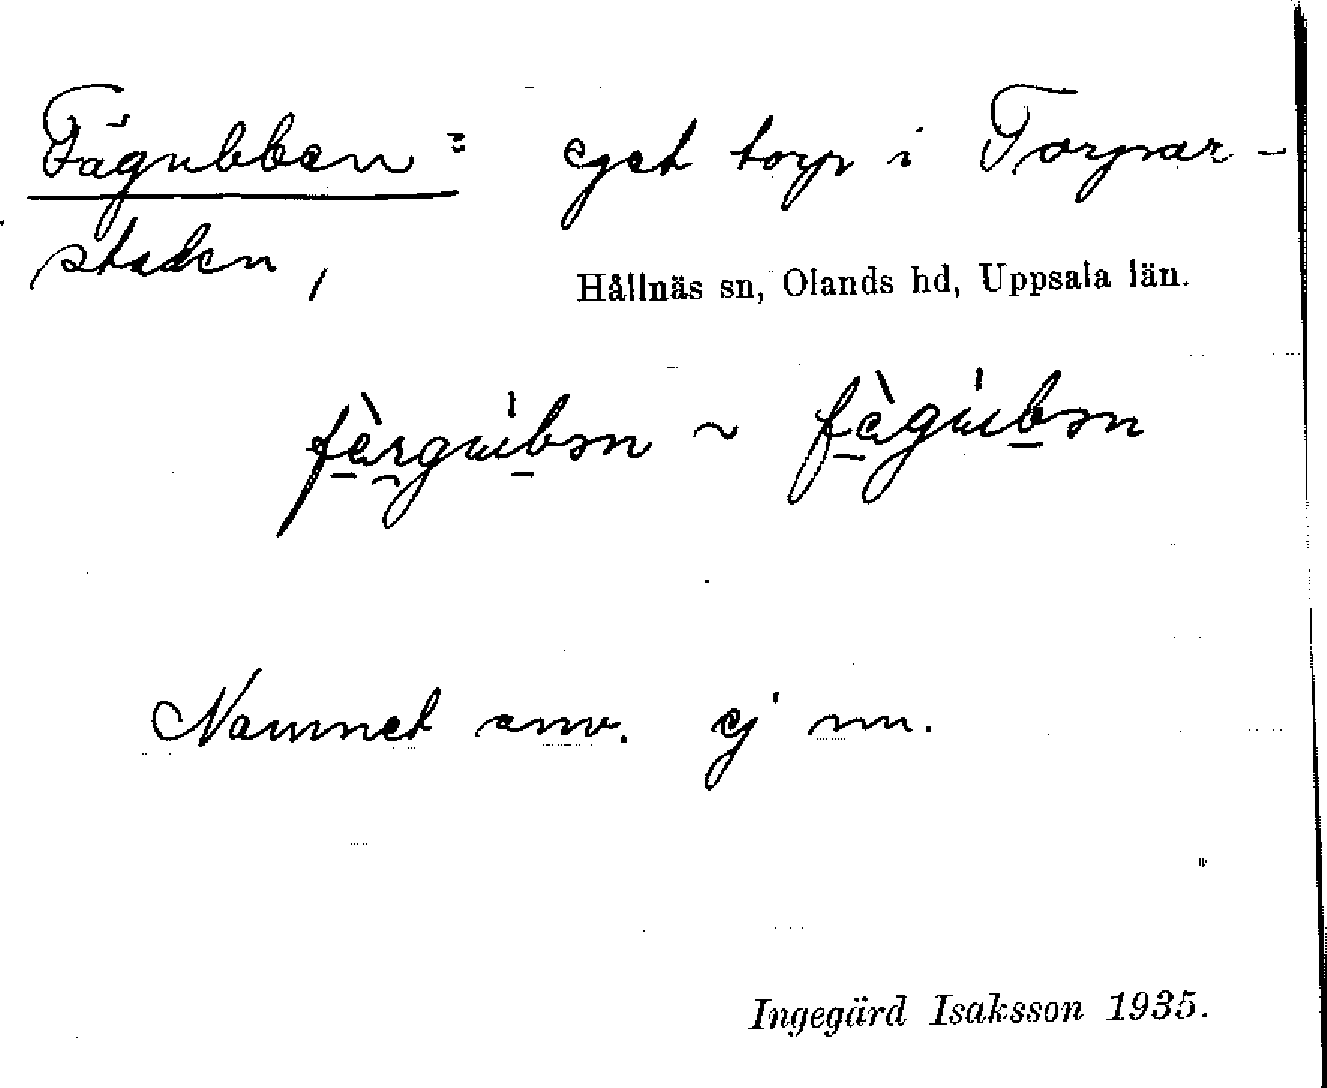 Fägubben = eget torp i Torpar-
staden,
Hållnäs sn, Olands hd, Uppsala län.
fàrgu̍bən ~ fàgu̍bən
Namnet anv. ej nu.
Ingegärd Isaksson 1935.